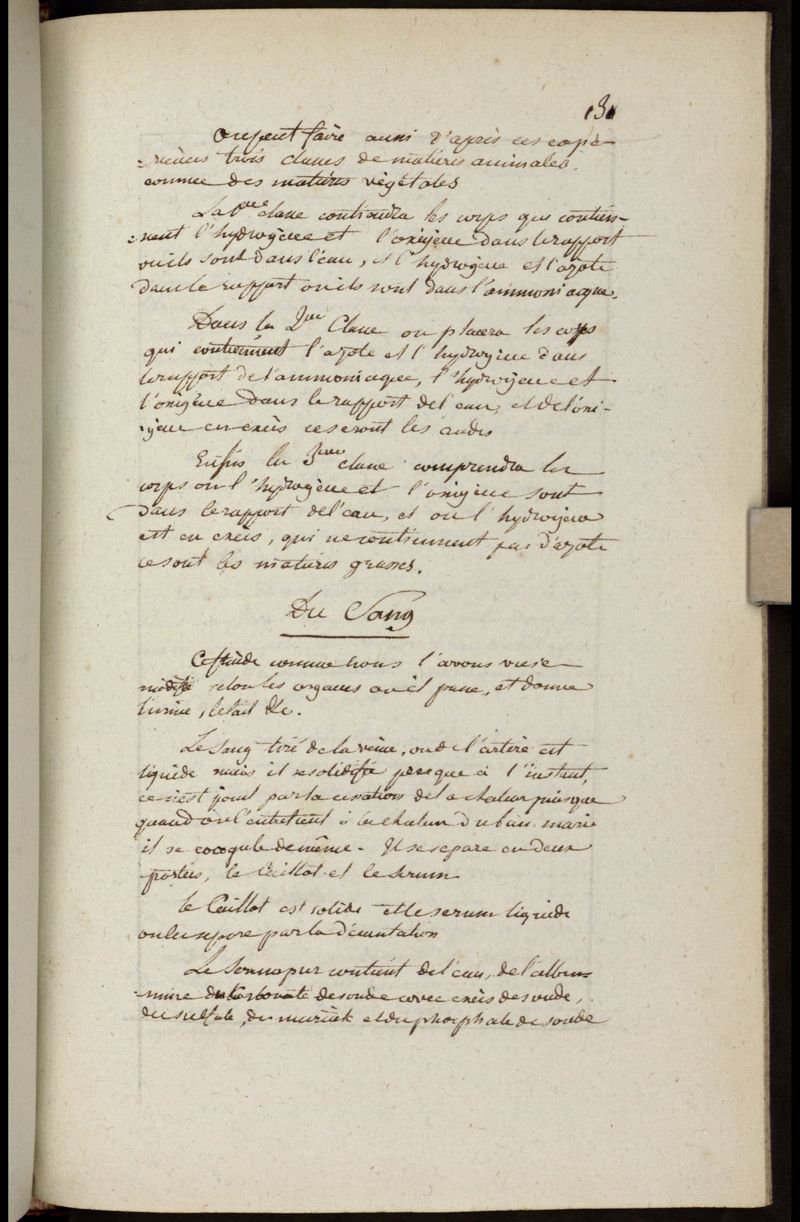 131
On peut faire aussi d'après ces expé-
-riences trois classes de matières animales.
comme des matières végétales
La 1ere classe contiendra les corps qui contien-
-nent l'hydrogène et l'oxigene dans le rapport
ou ils sont dans l'eau, et l'hydrogène et l'azote
dans le rapport ou ils sont dans l'ammoniaque.
Dans la 2me Classe on placera les corps
qui contiennent l'azote et l'hydrogène dans
le rapport de l'ammoniaque, l'hydrogene et
l'oxigène dans le rapport de l'eau, et de l'oxi-
-gene en excès ce seront les acides
Enfin la 3eme classe comprendra les
corps ou l'hydrogène et l'oxigene sont
dans le rapport de l'eau, et ou l'hydrogene
est en excès, qui ne contiennent pas d'azote
ce sont les matières grasses.
Du Sang
Ce fluide comme nous l'avons vu se
modifie selon les organes ou il passe, et donne
l'urine, le lait &c.
Le sang tiré de la veine, ou de l'artère est
liquide mais il se solidifie presque à l'instant,
ce n'est point par la cessation de la chaleur puisque
quand on l'entretient à la chaleur du bain marie
il se coagule de même. Il se separe en deux
parties, le Caillot et le serum
le Caillot est solide et le serum liquide
on les separe par la décantation
Le serum pur contient de l'eau, de l'albu-
-mine du Carbonate de soude avec excès de soude,
du sulfate, du muriate et du phosphate de soude